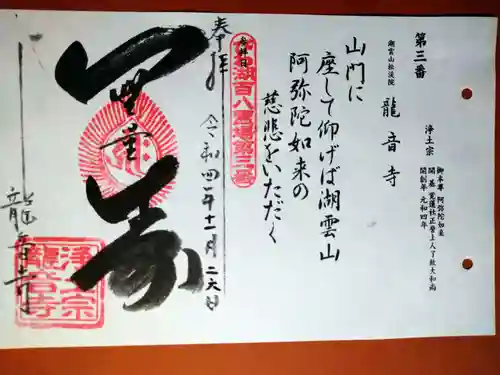 第三番
湖雲山松渓院
龍音寺
浄土宗
御本尊 阿弥陀如来
開創年 元和四年
山門に
座して仰げば湖雲山
阿弥陀如来の
慈悲をいただく
奉拝
令和四年十一月二六日
無量寿
龍音寺
浄土宗
龍音寺